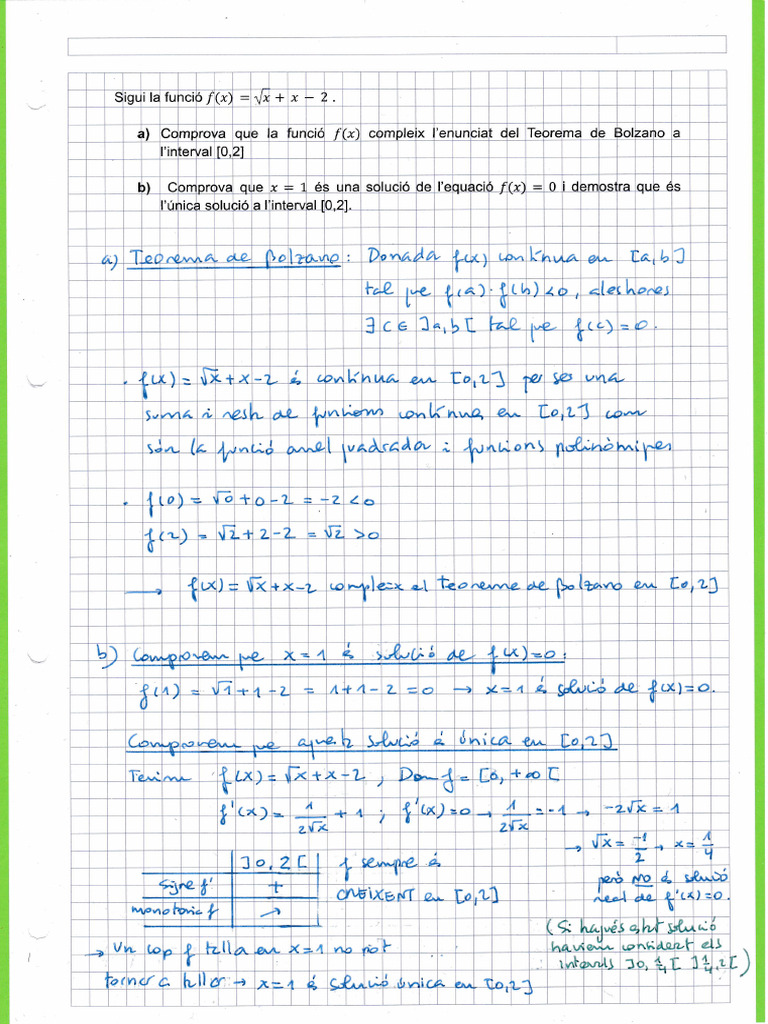 Sigui la funció f(x) = √x + x − 2 .
a) Comprova que la funció f(x) compleix l'enunciat del Teorema de Bolzano a
l'interval [0,2]
b) Comprova que x = 1 és una solució de l'equació f(x) = 0 i demostra que és
l'única solució a l'interval [0,2].
a) Teorema de Bolzano: Donada f(x) contínua en [a,b]
tal que f(a)·f(b)<0, aleshores
∃ c ∈ ]a,b[ tal que f(c)=0.
· f(x) = √x + x - 2 és contínua en [0,2] per ser una
suma i resta de funcions contínues en [0,2] com
són la funció arrel quadrada i funcions polinòmiques
· f(0) = √0 + 0 - 2 = -2 < 0
f(2) = √2 + 2 - 2 = √2 > 0
→ f(x) = √x + x - 2 compleix el teorema de Bolzano en [0,2]
b) Comprovem que x = 1 és solució de f(x)=0:
f(1) = √1 + 1 - 2 = 1 + 1 - 2 = 0 → x = 1 és solució de f(x)=0.
Comprovem que aquesta solució és única en [0,2]
Tenim f(x) = √x + x - 2 , Dom f = [0, +∞[
f'(x) = 1/(2√x) + 1 ; f'(x)=0 → 1/(2√x) = -1 → -2√x = 1
→ √x = -1/2 → x = 1/4
però NO és solució
real de f'(x)=0.
(Si hagués estat solució
hauríem considerat els
intervals ]0, 1/4[ ]1/4, 2[ )
]0,2[
Signe f' +
monotonia f →
f sempre és
CREIXENT en [0,2]
→ Un cop f talla en x=1 no pot
tornar a tallar → x=1 és solució única en [0,2]